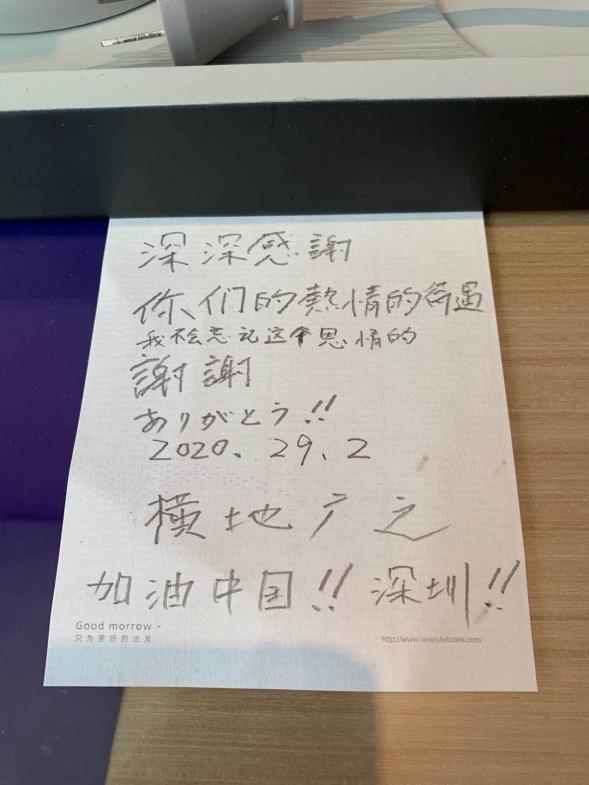 深深感謝
你、们的熱情的待遇
我不会忘记这个恩情的
謝謝
ありがとう!!
2020、29、2
横地广之
加油中国!! 深圳!!
Good morrow ·
只为更好的出发
http://www.lavandehotels.com/